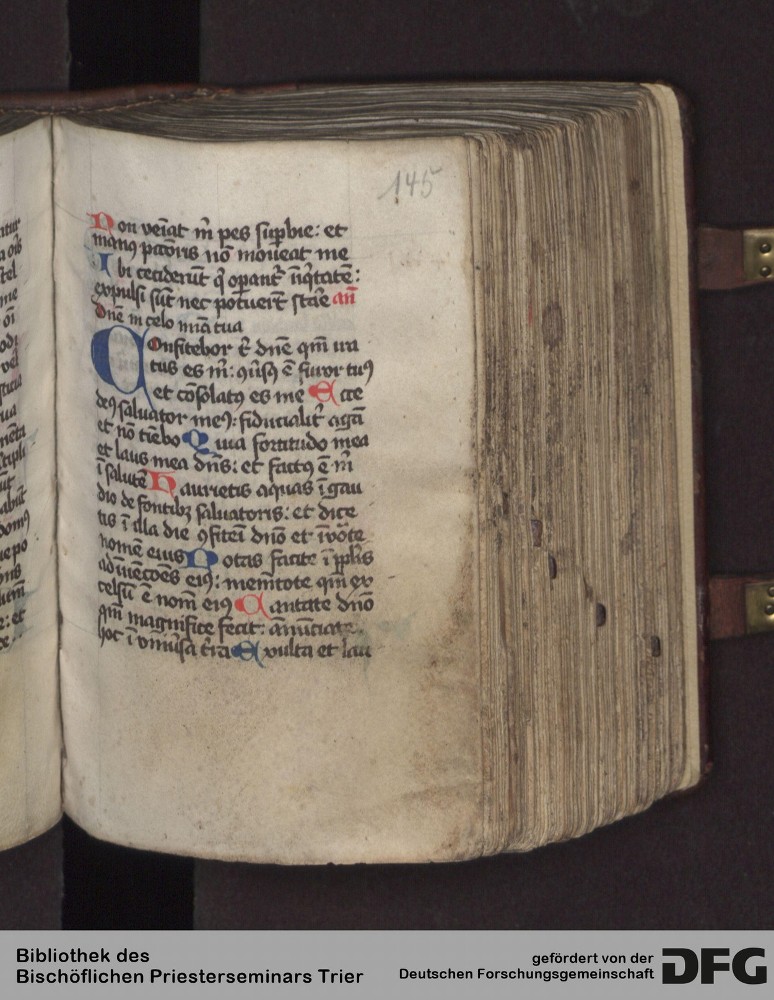 145
Non veīat m̄ pes suꝑbie: et
manꝰ pcc̄oris nō moueat me
Ibi ceciderūt q̄ oꝑant᷑ īiq̄tatē:
expulsi sūt nec potuer̄t stāe an̄
Dn̄e in celo mīa tua
Confitebor t̄ dn̄e qm̄ ira
tus es m̄: ꝯūsꝰ ē furor tuꝰ
et cōsolatꝰ es me Ecce
deꝰ salvator meꝰ: fiducialit᷑ agā
et nō tīebo Quia fortitudo mea
et laus mea dn̄s: et factꝰ ē m̄
ī salutē Haurietis aquas ī gau
dio de fontibꝫ salvatoris: et dice
tis ī illa die ꝯfitem̄ dn̄o et īvo᷑te
nomē eius Notas facite ī pp̄lis
adīuēcōes eiꝰ: mem̄tote qm̄ ex
celsū ē nom̄ eiꝰ Cantate dn̄o
qm̄ magnifice fecit: annūciate
hoc ī vniūsa t̄ra Exulta et lau
Bibliothek des
Bischöflichen Priesterseminars Trier
gefördert von der
Deutschen Forschungsgemeinschaft
DFG